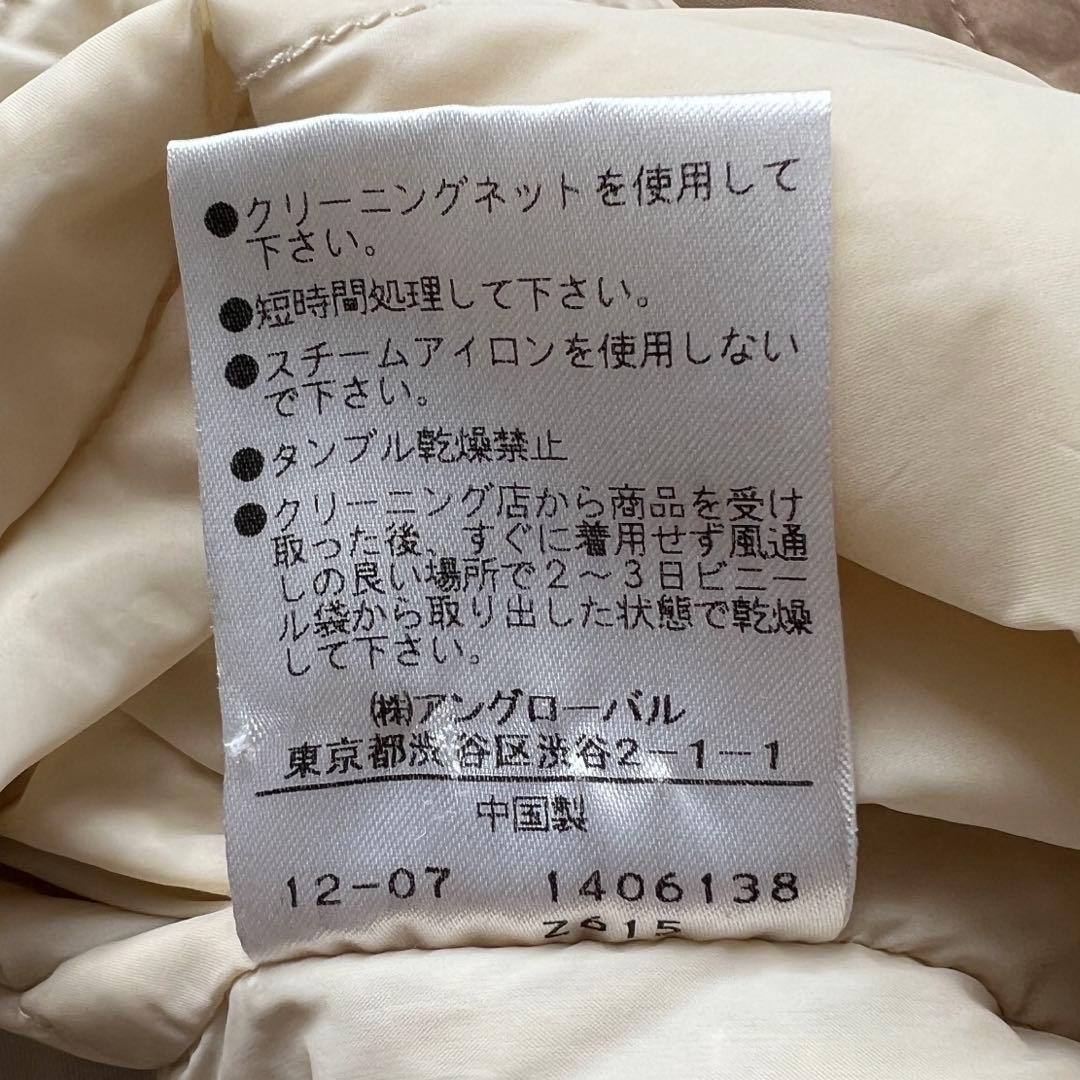 ●クリーニングネットを使用して
下さい。
●短時間処理して下さい。
●スチームアイロンを使用しない
で下さい。
●タンブル乾燥禁止
●クリーニング店から商品を受け
取った後、すぐに着用せず風通
しの良い場所で2〜3日ビニー
ル袋から取り出した状態で乾燥
して下さい。
㈱アングローバル
東京都渋谷区渋谷2-1-1
中国製
12-07 1406138
Z615